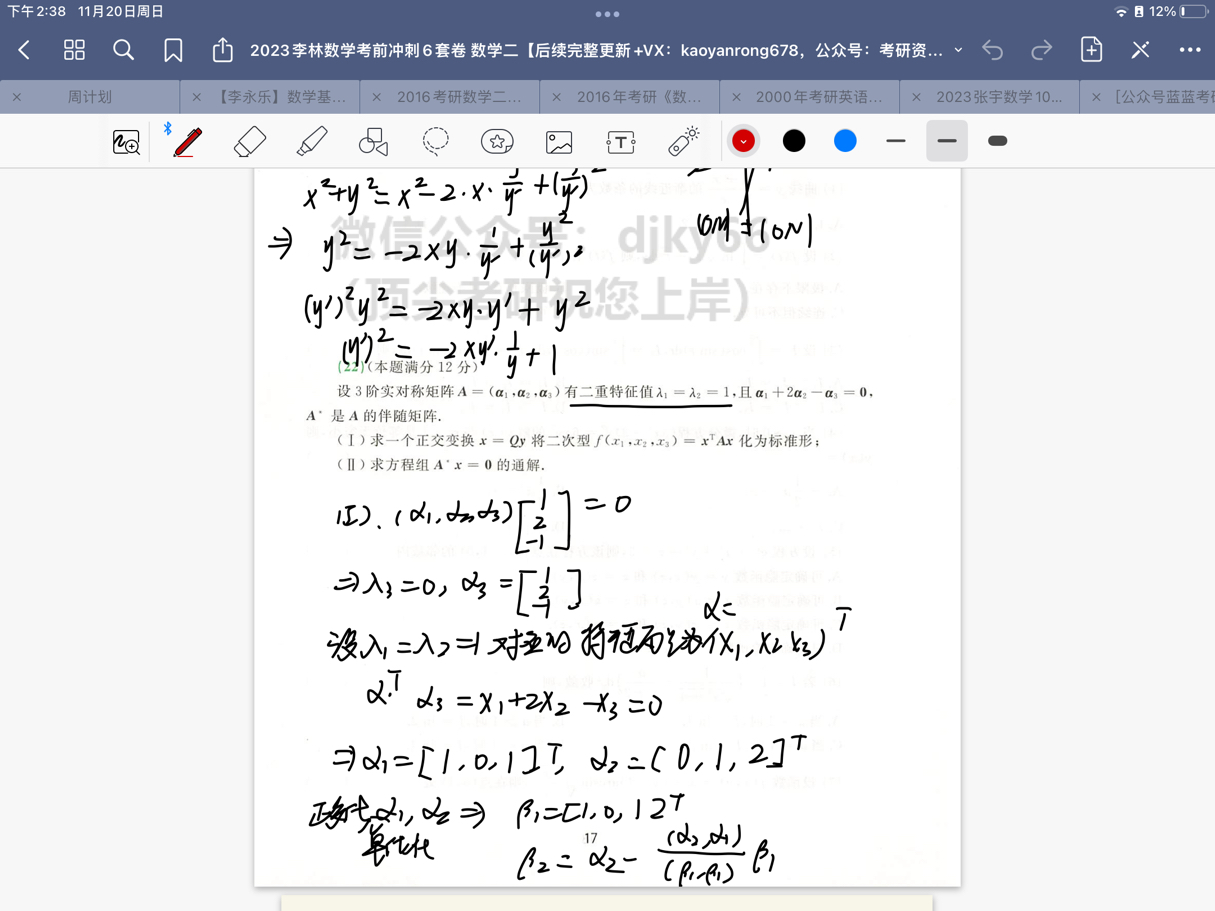 下午2:38 11月20日周日
12%
2023李林数学考前冲刺6套卷 数学二【后续完整更新+VX：kaoyanrong678，公众号：考研资...
周计划
【李永乐】数学基...
2016考研数学二...
2016年考研《数...
2000年考研英语...
2023张宇数学10...
[公众号蓝蓝考研
x²+y²=x²-2·x·y/y'+(y/y')²
|OM|=|ON|
微信公众号：djky66
⇒ y²=-2xy·1/y'+y²/(y')²
(顶尖考研祝您上岸)
(y')²y²=-2xy·y'+y²
(y')²=-2xy'·1/y+1
(22)(本题满分12分)
设3阶实对称矩阵A=(α₁,α₂,α₃)有二重特征值λ₁=λ₂=1,且α₁+2α₂-α₃=0,
A*是A的伴随矩阵.
(Ⅰ)求一个正交变换x=Qy将二次型f(x₁,x₂,x₃)=xᵀAx化为标准形;
(Ⅱ)求方程组A*x=0的通解.
(Ⅰ). (α₁,α₂,α₃)[1 2 -1]=0
⇒λ₃=0, α₃=[1 2 -1]
α=
设λ₁=λ₂=1对应的特征向量为(x₁,x₂,x₃)ᵀ
αᵀα₃=x₁+2x₂-x₃=0
⇒α₁=[1,0,1]ᵀ, α₂=[0,1,2]ᵀ
正交化α₁,α₂⇒ β₁=[1,0,1]ᵀ
单位化
17
β₂=α₂-(α₂,α₁)/(β₁,β₁)β₁